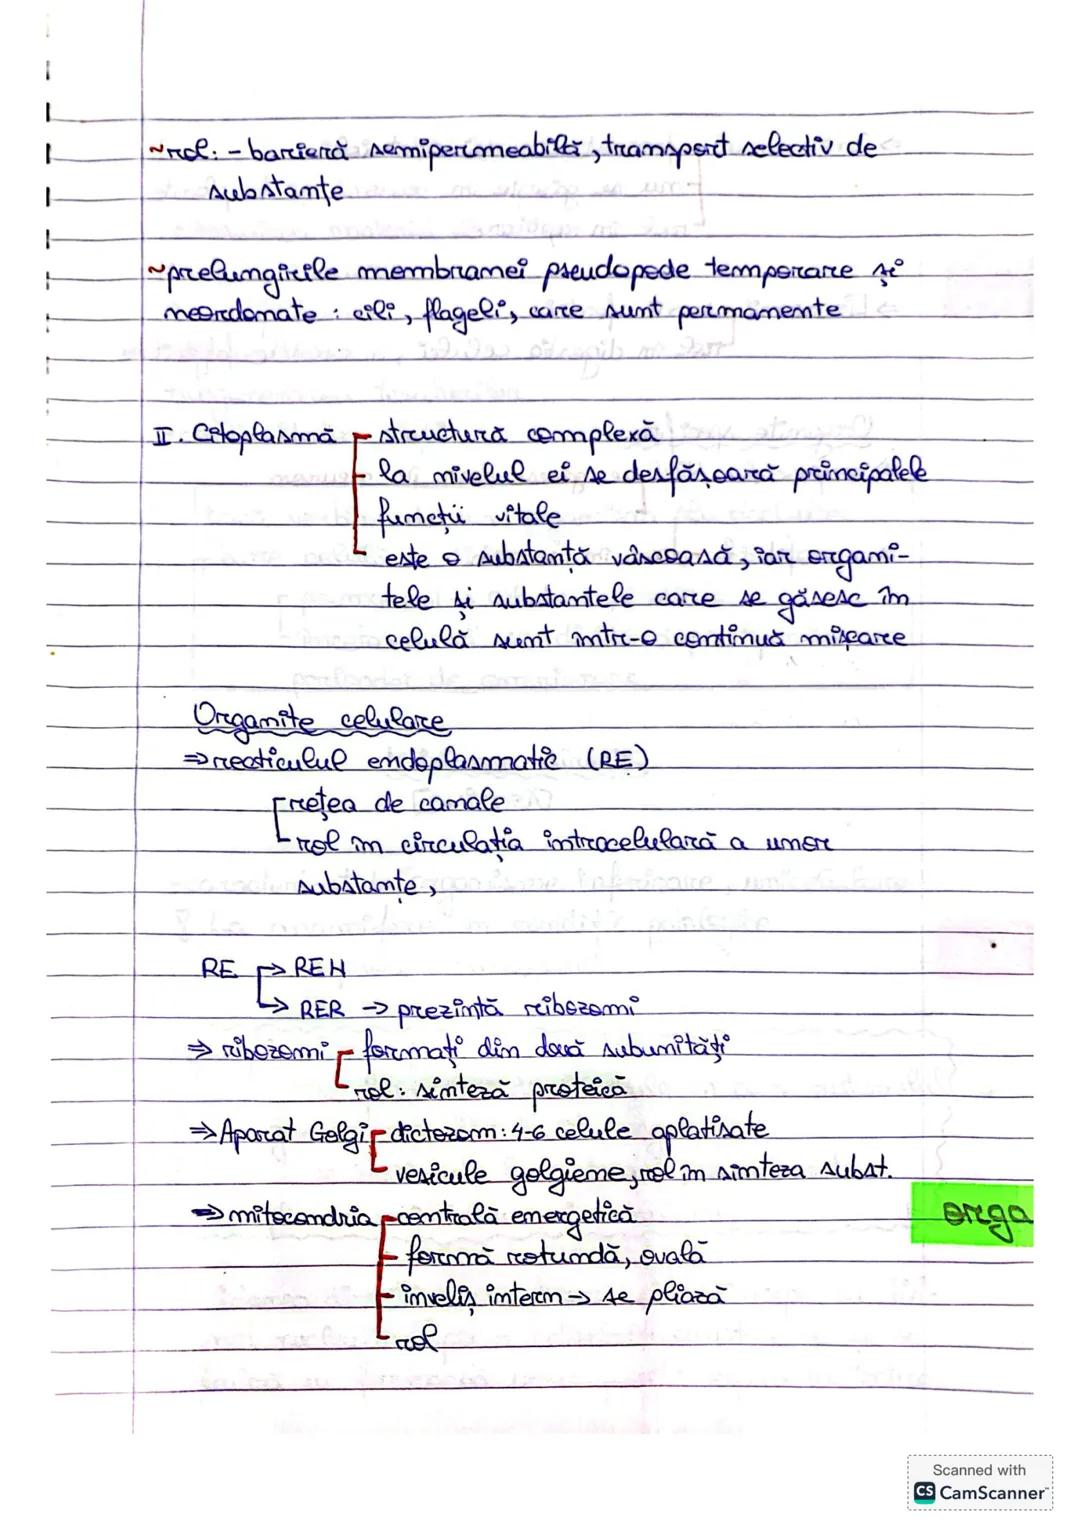 ~rol: - barieră semipermeabilă, transport selectiv de
substanțe
~prelungirile membranei pseudopode temporare și
neordonate : cili, flageli, care sunt permanente
II. Citoplasmă - structură complexă
- la nivelul ei se desfășoară principalele
funcții vitale
- este o substanță vâscoasă, iar organi-
tele și substantele care se găsesc în
celulă sunt într-o continuă mișcare
Organite celulare
⇒ reoticulul endoplasmatic (RE)
- rețea de canale
- rol în circulația intracelulară a unor
substanțe,
RE → REN
→ RER → prezintă ribozomi
⇒ ribozomi - formați din două subunități
- rol: sinteză proteică
⇒ Aparat Golgi - dictozom: 4-6 celule aplatisate
- vesicule golgiene, rol în sinteza subst.
⇒ mitocondria - centrală energetică
orga
- formă rotundă, ovală
- inveliș intern → se pliază
- rol
Scanned with
CS CamScanner